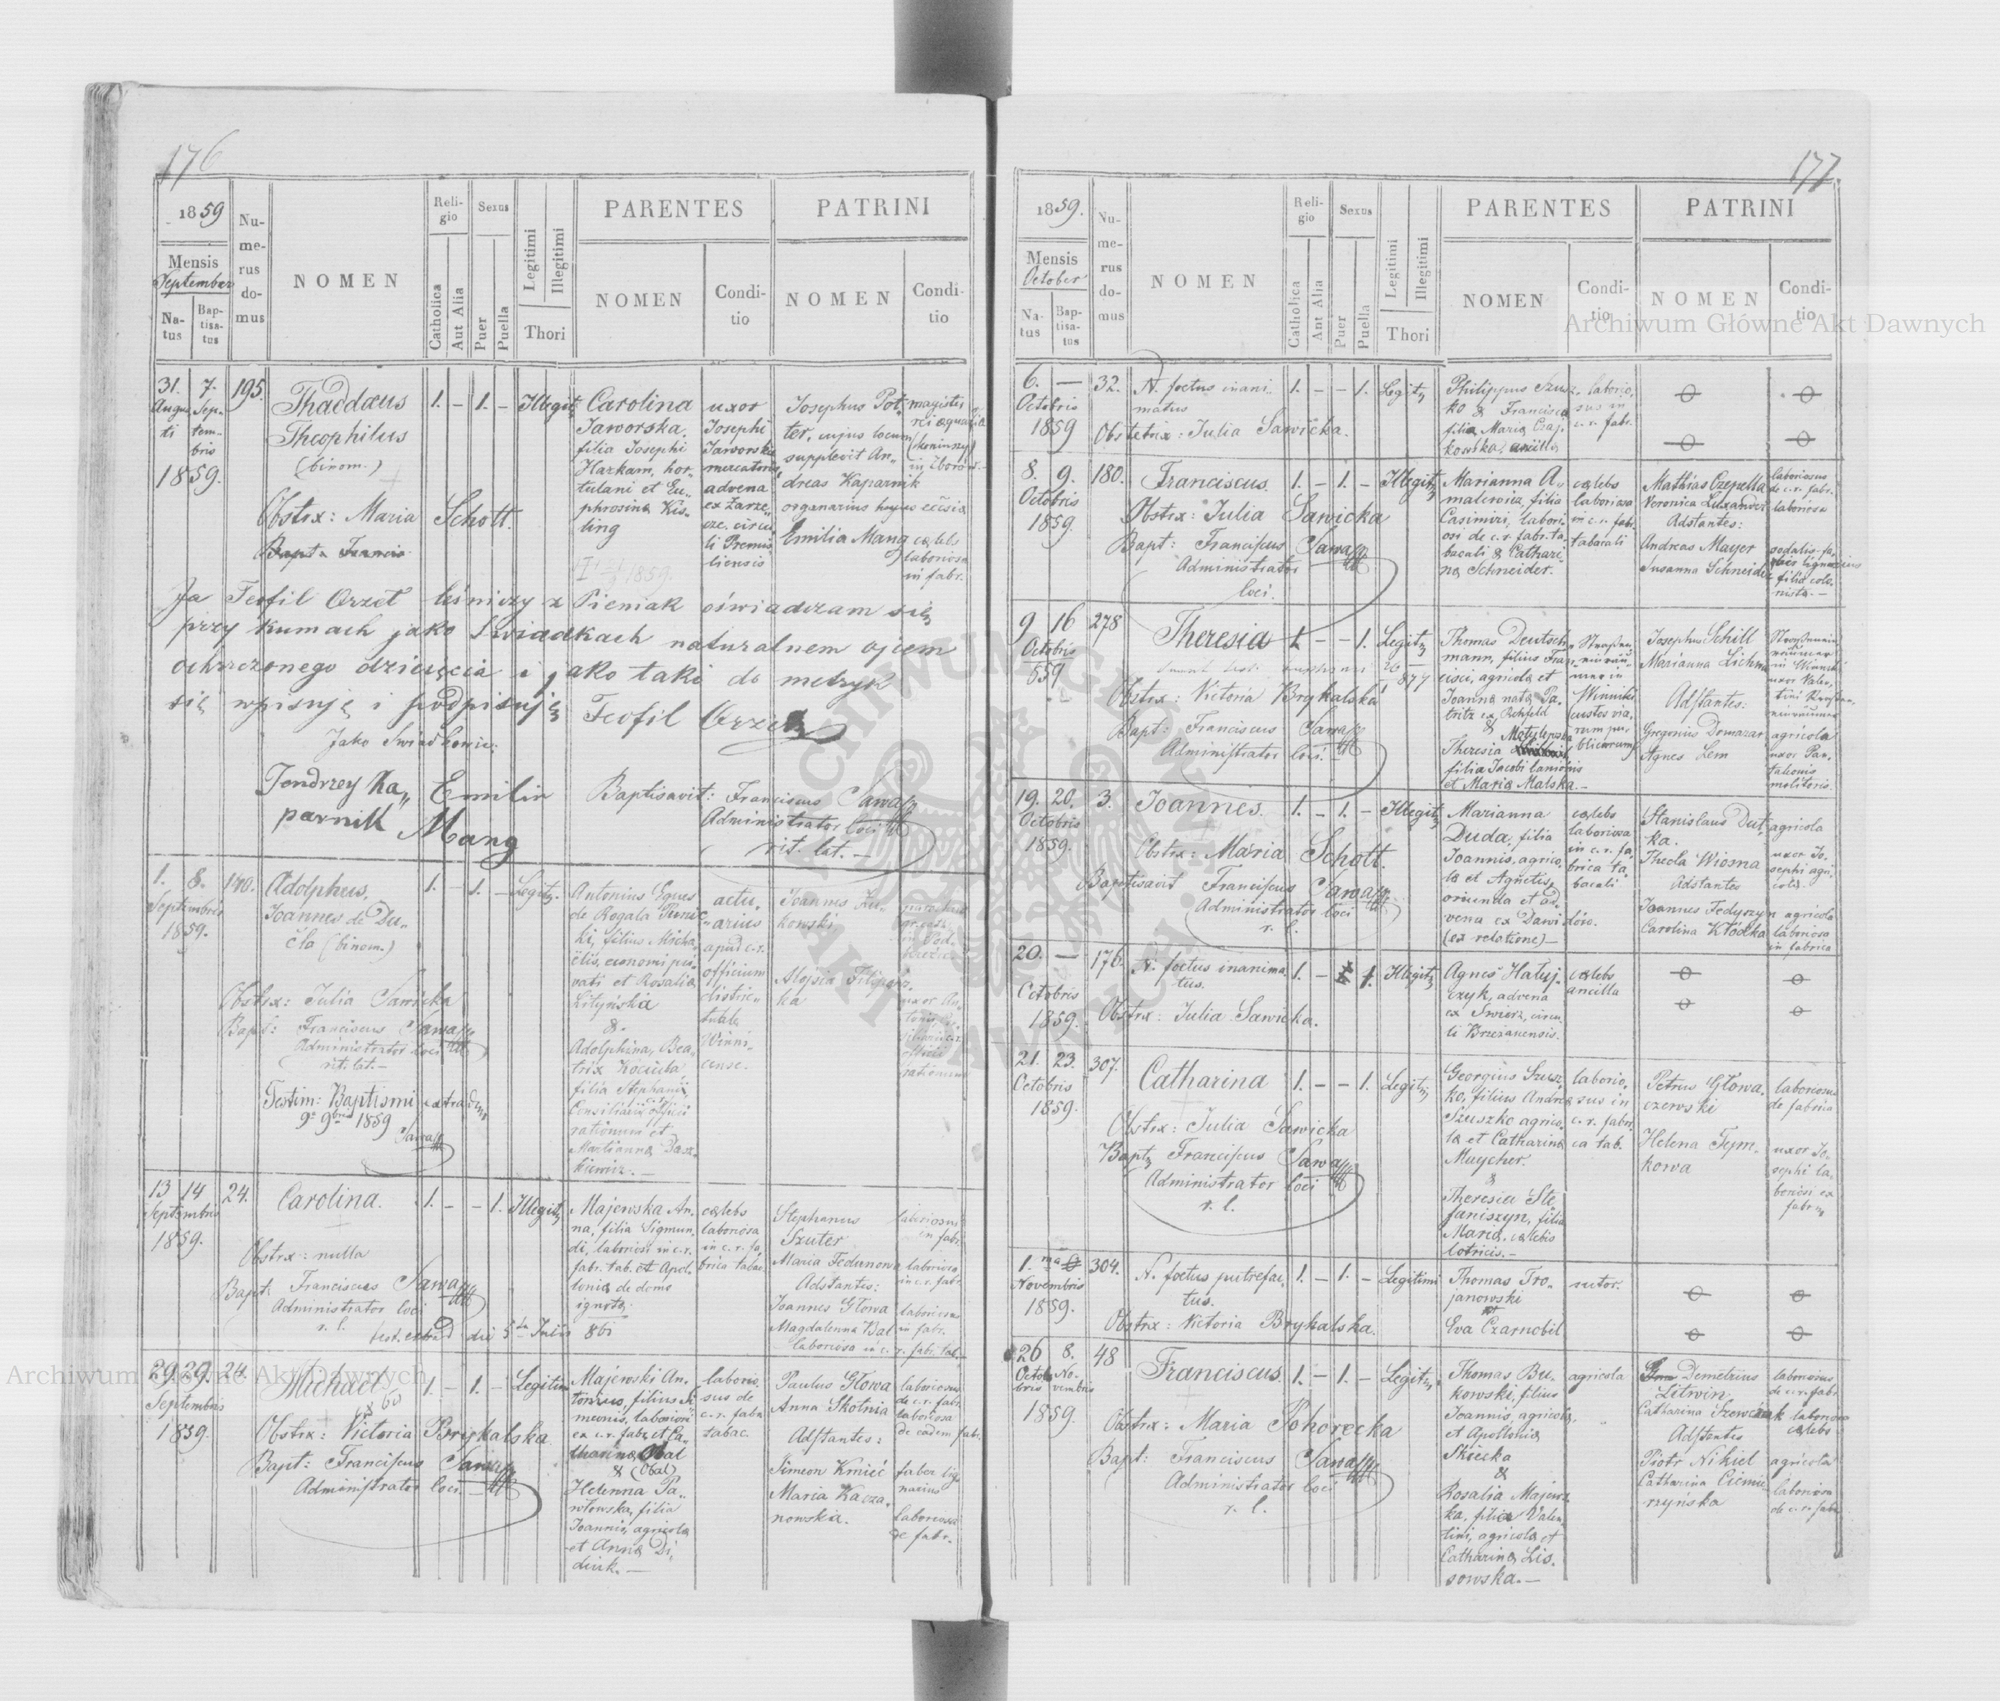 176
1859
Mensis
September
Na-
tus
Bap-
tisa-
tus
Nu-
me-
rus
do-
mus
NOMEN
Reli-
gio
Catholica
Aut Alia
Sexus
Puer
Puella
Legitimi
Illegitimi
Thori
PARENTES
NOMEN
Condi-
tio
PATRINI
NOMEN
Condi-
tio
31.
Augus
ti
7.
Sep-
tem-
bris
1859.
195.
Thaddæus
Theophilus
(binom.)
Obstrx: Maria Schott.
1. - 1. -
Illegit
Carolina
Jaworska,
filia Josephi
Harkam, hor-
tulani et Eu-
phrosina Kis-
ling
uxor
Josephi
Jaworski
mercatoris,
advena
ex Zarze-
cze, circu
li Premis
liensis
Josephus Pot-
ter, cujus locum
supplevit An-
dreas Kaparnik
organarius hujus
Emilia Mang
magister
cælebs
laboriosa
in fabr.
Ja Teofil Orzet leśniczy z Pieniak oświadczam się
przy kumach jako Świadkach naturalnem ojcem
ochrzczonego dziecięcia i jako taki do metryk
się wpisuję i podpisuję Teofil Orzet
Jako Świadkowie:
Jendrzey Ka-
parnik
Emilia
Mang
Baptisavit: Franciscus Sawa
Administrator loci
rit. lat. -
1. 8.
Septembris
1859.
140.
Adolphus,
Joannes de Du-
cla (binom.)
Obstrx: Julia Sawicka
Bapt: Franciscus Sawa
Administrator loci
rit. lat. -
Testim: Baptismi extradit
9. 9bris 1859
Sawa
1. - 1. -
Legit.
Antonius Eques
de Rogala
ki, filius Micha-
elis, œconomi pri-
vati et Rosalia
&
Adolphina, Bea-
trix Kociuba
filia Stephani,
Consiliarii
rationum et
Marianna
actu-
arius
apud c. r.
officium
distric-
tuale
Winni-
cense.
Joannes Zu-
kowski
Aloisia
ka
13 14
Septembris
1859.
24.
Carolina.
Obstrx: nulla
Bapt: Franciscus Sawa
Administrator loci
r. l.
test. extrad die 5ta Julii 861
1. - - 1.
Illegit
Majewska An-
na, filia Sigmun-
di, laboriosi in c. r.
fabr. tab. et Apol-
lonia de domo
ignota.
cælebs
laboriosa
in c. r. fa-
brica tabac.
Stephanus
Szuter
Maria Fedunowa
Adstantes:
Joannes Głowa
Magdalenna Bal
laboriosa in c. r. fabr. tab.
laboriosus
in fabr.
laboriosa
in c. r. fabr.
laboriosus
in fabr.
29. 29.
Septembris
1859.
24.
Michael
Obstrx: Victoria Brykalska
Bapt: Franciscus Sawa
Administrator loci
1. - 1. -
Legitim
Majewski An-
tonius, filius Si-
meonis, laboriosi
ex c. r. fabr. et Ca-
tharina Obal
& (Obal)
Helenna Pa-
włowska, filia
Joannis, agricola
et Anna Di-
diuk. -
laborio-
sus de
c. r. fabr.
tabac.
Paulus Głowa
Anna Skotnia
Adstantes:
Simeon Kmieć
Maria Kacza-
nowska.
laboriosus
de c. r. fabr.
laboriosa
de eadem fab.
faber lig-
narius
laboriosa
de fabr.
177.
1859.
Mensis
October
Na-
tus
Bap-
tisa-
tus
Nu-
me-
rus
do-
mus
NOMEN
Reli-
gio
Catholica
Aut Alia
Sexus
Puer
Puella
Legitimi
Illegitimi
Thori
PARENTES
NOMEN
Condi-
tio
PATRINI
NOMEN
Condi-
tio
6. -
Octobris
1859
32.
N. foetus inani-
matus
Obstetrix: Julia Sawicka.
1. - - 1.
Legit
Philippus Szusz-
ko & Francisca
filia Maria Czaj-
kowska, ancilla
laborio-
sus in
c. r. fabr.
8. 9.
Octobris
1859.
180.
Franciscus.
Obstrx: Julia Sawicka
Bapt: Franciscus Sawa
Administrator
loci.
1. - 1. -
Illegit
Marianna A-
malewicz, filia
Casimiri, labori-
osi de c. r. fabr. ta-
bacali & Cathari-
na Schneider.
cælebs
laboriosa
in c. r. fabr.
tabacali
Mathias Czepella
Veronica Luxander
Adstantes:
Andreas Mayer
Susanna Schneider
laboriosus
de c. r. fabr.
laboriosa
filia colo-
nista. -
9 16
Octobris
859
278
Theresia
Obstrx: Victoria Brykalska
Bapt: Franciscus Sawa
Administrator loci.
1. - - 1.
Legit
Thomas Deutsch-
mann, filius Fran-
cisci, agricola et
Joanna nata Pa-
tritz ex Rehfeld
&
Theresia Motylewska
filia Jacobi lanionis
et Maria Malska. -
Winniki
custos via-
rum pu-
blicarum
Josephus Schill
Marianna Lichma
Adstantes:
Gregorius Domazar
Agnes Lem
agricola
uxor Pan-
talionis
molitoris.
19. 20.
Octobris
1859.
3.
Joannes.
Obstrx: Maria Schott.
Baptisavit Franciscus Sawa
Administrator loci
r. l.
1. - 1. -
Illegit
Marianna
Duda, filia
Joannis, agrico-
la et Agnetis,
oriunda et ad-
vena ex Dawidów.
(ex relatione) -
cælebs
laboriosa
in c. r. fa-
brica ta-
bacali
Stanislaus Dut-
ka.
Thecla Wiosna
Adstantes
Joannes Fedyszyn
Carolina Kłódka
agricola
uxor Jo-
sephi agri-
cola.
agricola
laboriosa
in fabrica
20. -
Octobris
1859.
176.
N. foetus inanima-
tus.
Obstrx: Julia Sawicka.
1. - 1.
Illegit
Agnes Hałuj-
czyk, advena
ex Świerz, circu-
li Brzezanensis.
cælebs
ancilla
21. 23.
Octobris
1859.
307.
Catharina
Obstrx: Julia Sawicka
Bapt Franciscus Sawa
Administrator loci
r. l.
1. - - 1.
Legit
Georgius Szusz-
ko, filius Andrea
Szuszko agrico-
la et Catharina
Muycher.
&
Theresia Ste-
faniszyn, filia
Maria, cælebis
lotricis. -
laborio-
sus in
c. r. fabri-
ca tab.
Petrus Głowa-
czewski
Helena Tym-
kowa
laboriosus
de fabrica
uxor Jo-
sephi la-
boriosi ex
fabr.
1. ma
Novembris
1859.
304.
N. foetus putrefac-
tus.
Obstrx: Victoria Brykalska.
1. - 1. -
Legitimi
Thomas Tro-
janowski
et
Eva Czarnobil
sutor.
26
Octo-
bris
8.
No-
vembris
1859.
48
Franciscus.
Obstrx: Maria Pohorecka
Bapt: Franciscus Sawa
Administrator loci
r. l.
1. - 1. -
Legit
Thomas Bu-
kowski, filius
Joannis, agricola,
et Apollonia
Skicka
&
Rosalia Majews-
ka, filia Valen-
tini, agricola et
Catharina Lis-
sowska. -
agricola
Demetrius
Litwin
Catharina Szewczak
Adstantes
Piotr Nikiel
Catharina Ciemie-
rzyńska
laboriosus
de c. r. fabr.
laboriosa
cælebs
agricola
laboriosa
de c. r. fabr.
Archiwum Główne Akt Dawnych
Archiwum Główne Akt Dawnych
ARCHIWUM GŁÓWNE AKT DAWNYCH